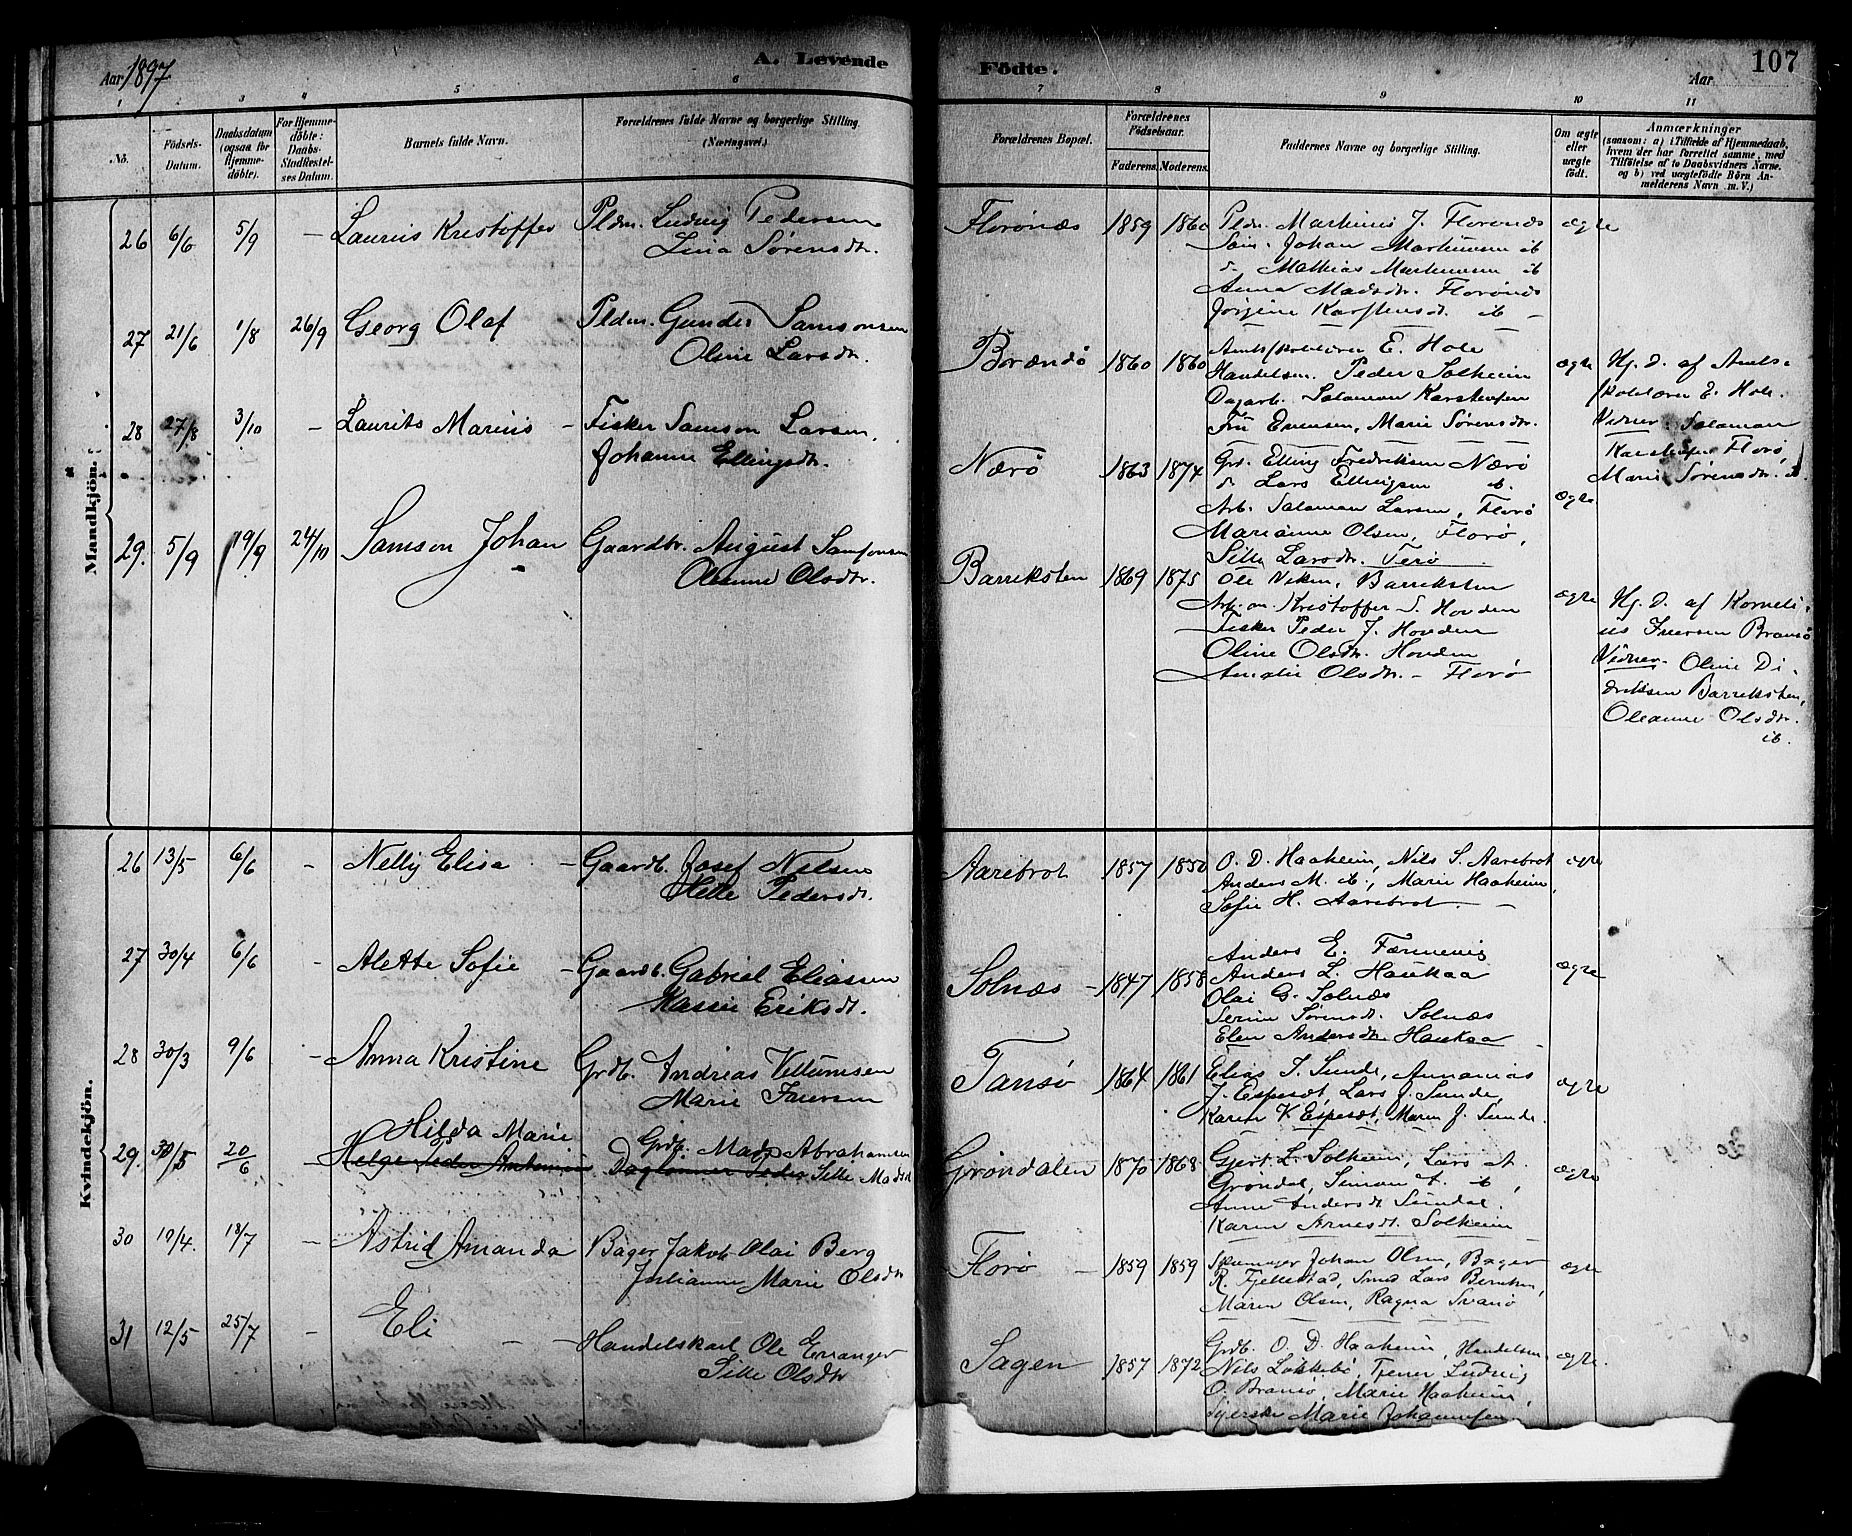 Aar 1897
A. Levende
Födte.
Aar
107
1
3
4
5
6
7
8
9
10
11
No.
Födsels-
Datum.
Daabsdatum
(ogsaa for
Hjemme-
döbte).
For Hjemme-
döbte:
Daabs-
Stadfæstel-
ses Datum.
Barnets fulde Navn.
Forældrenes fulde Navne og borgerlige Stilling.
(Næringsvei.)
Forældrenes Bopæl.
Forældrenes
Födselsaar.
Faderens. Moderens.
Faddernes Navne og borgerlige Stilling.
Om ægte
eller
uægte
födt.
Anmærkninger
(saasom: a) i Tilfælde af Hjemmedaab,
hvem der har forrettet samme, med
Tilföielse af to Daabsvidners Navne,
og b) ved uægtefödte Börn An-
melderens Navn m. V.)
Mandkjön.
26 6/6 5/9 - Laurits Kristoffer
Pldm. Ludvig Pedersen
Lina Sørensdtr.
Florønæs 1859 1860
Pldm. Markinus J. Florønæs
Søn. Johan Markussen ib
d. Mathias Markussen ib
Anna Madsdtr. Florønæs
Jørgine Karstensd. ib -
ægte
27 21/6 1/8 26/9 Georg Olaf
Pldm. Gunder Samsonsen
Oline Larsdtr.
Brændø 1860 1860
Amtsskolelærer E. Hole
Handelsm. Peder Solheim
Dagarb. Salamon Karstensen
Fru Enensen, Marie Sørensdtr.
ægte
Hj. D. af Amts-
skolelærer E. Hole.
Vidner: Salamon
Karstensen Florø,
Marie Sørensdtr. ib.
28 27/8 3/10 - Laurits Marius -
Fisker Samson Larsen,
Johanne Ellingsdtr.
Nærø 1863 1874
Grb. Elling Fredriksen Nærø
d. Lars Ellingsen ib.
Arb. Salamon Larsen, Florø
Marianne Olsen, Florø,
Sille Larsdtr. Terø
ægte
29. 5/9 19/9 24/10 Samson Johan
Gaardbr. August Samsonsen
Oleanne Olsdtr.
Barreksten 1869 1875
Ole Niksen, Barreksten
Arb.m. Kristoffer S. Hovden
Fisker Peder J. Hovden
Oline Olsdtr. Hovden
Amalie Olsdtr. - Florø
ægte
Hj. D. af Korneli-
us Iversen Bransø
Vidner. Oline Di-
driksen Barreksten,
Oleanne Olsdtr.
ib.
Kvindekjön.
26 13/5 6/6 - Nelly Elisa -
Gaardb. Josef Nilsen
Helle Pedersdtr.
Aarebrot 1857 1850
O. D. Haaheim, Nils S. Aarebrot
Anders M. ib., Marie Haaheim,
Sofie H. Aarebrot -
ægte
27 30/4 6/6 - Alette Sofie -
Gaardb. Gabriel Eliassen
Kassie Eriksdt.
Solnæs - 1847 1858
Anders E. Færnevig
Anders L. Haukaa
Olai G. Solnæs
Serine Sørensdt. Solnæs
Elen Andersdtr. Haukaa
ægte
28 30/3 9/6 - Anna Kristine
Grdb. Andreas Villumsen
Marie Iversen
Tansø 1864 1861
Elias I. Sunde, Annanias
J. Espesæt, Lars J. Sunde,
Karen V. Espesæt, Maren J. Sunde
ægte
29. 30/5 20/6 Hilda Marie
Helge Peder Antonius
Grdb. Mads Abrahamsen
Daglønner Peder Sille Madsd.
Grøndalen 1870 1868
Gjert L. Solheim, Lars A.
Grøndal, Simon A. ib,
Anne Andersdt. Sundal.
Karen Arnesdt. Solheim -
ægte
30 19/4. 18/7 - Astrid Amanda
Bager Jakob Olai Berg
Julianne Marie Olsdtr.
Florø - 1859 1859
Skomager Johan Olsen, Bager
R. Fjellestad, Smed Lars Berntsen,
Maren Olsen, Ragna Svanø
ægte
31 12/5 25/7 - Eli -
Handelskarl Ole Erranger
Sille Olsdtr
Sagen 1857 1872
Grdb. O. D. Haaheim, Handelsm.
Nils Løkkebø, Tjener Ludvig
O. Bransø, Marie Haaheim,
Syerske Marie Johannesen
ægte.